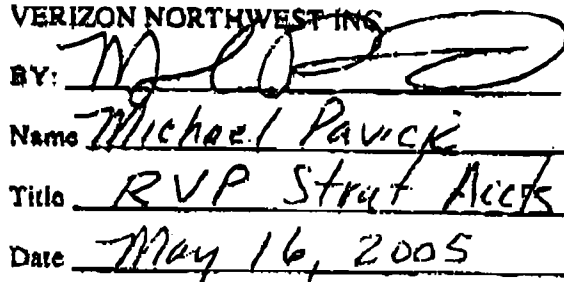 VERIZON NORTHWEST INC
BY:
Name Michael Pavick
Title RVP Strat Accts
Date May 16, 2005